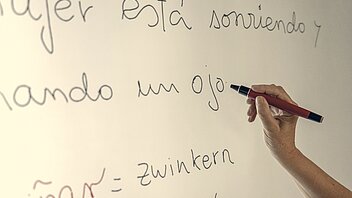 ujer está sonriendo y
ñando un ojo
iñar = zwinkern